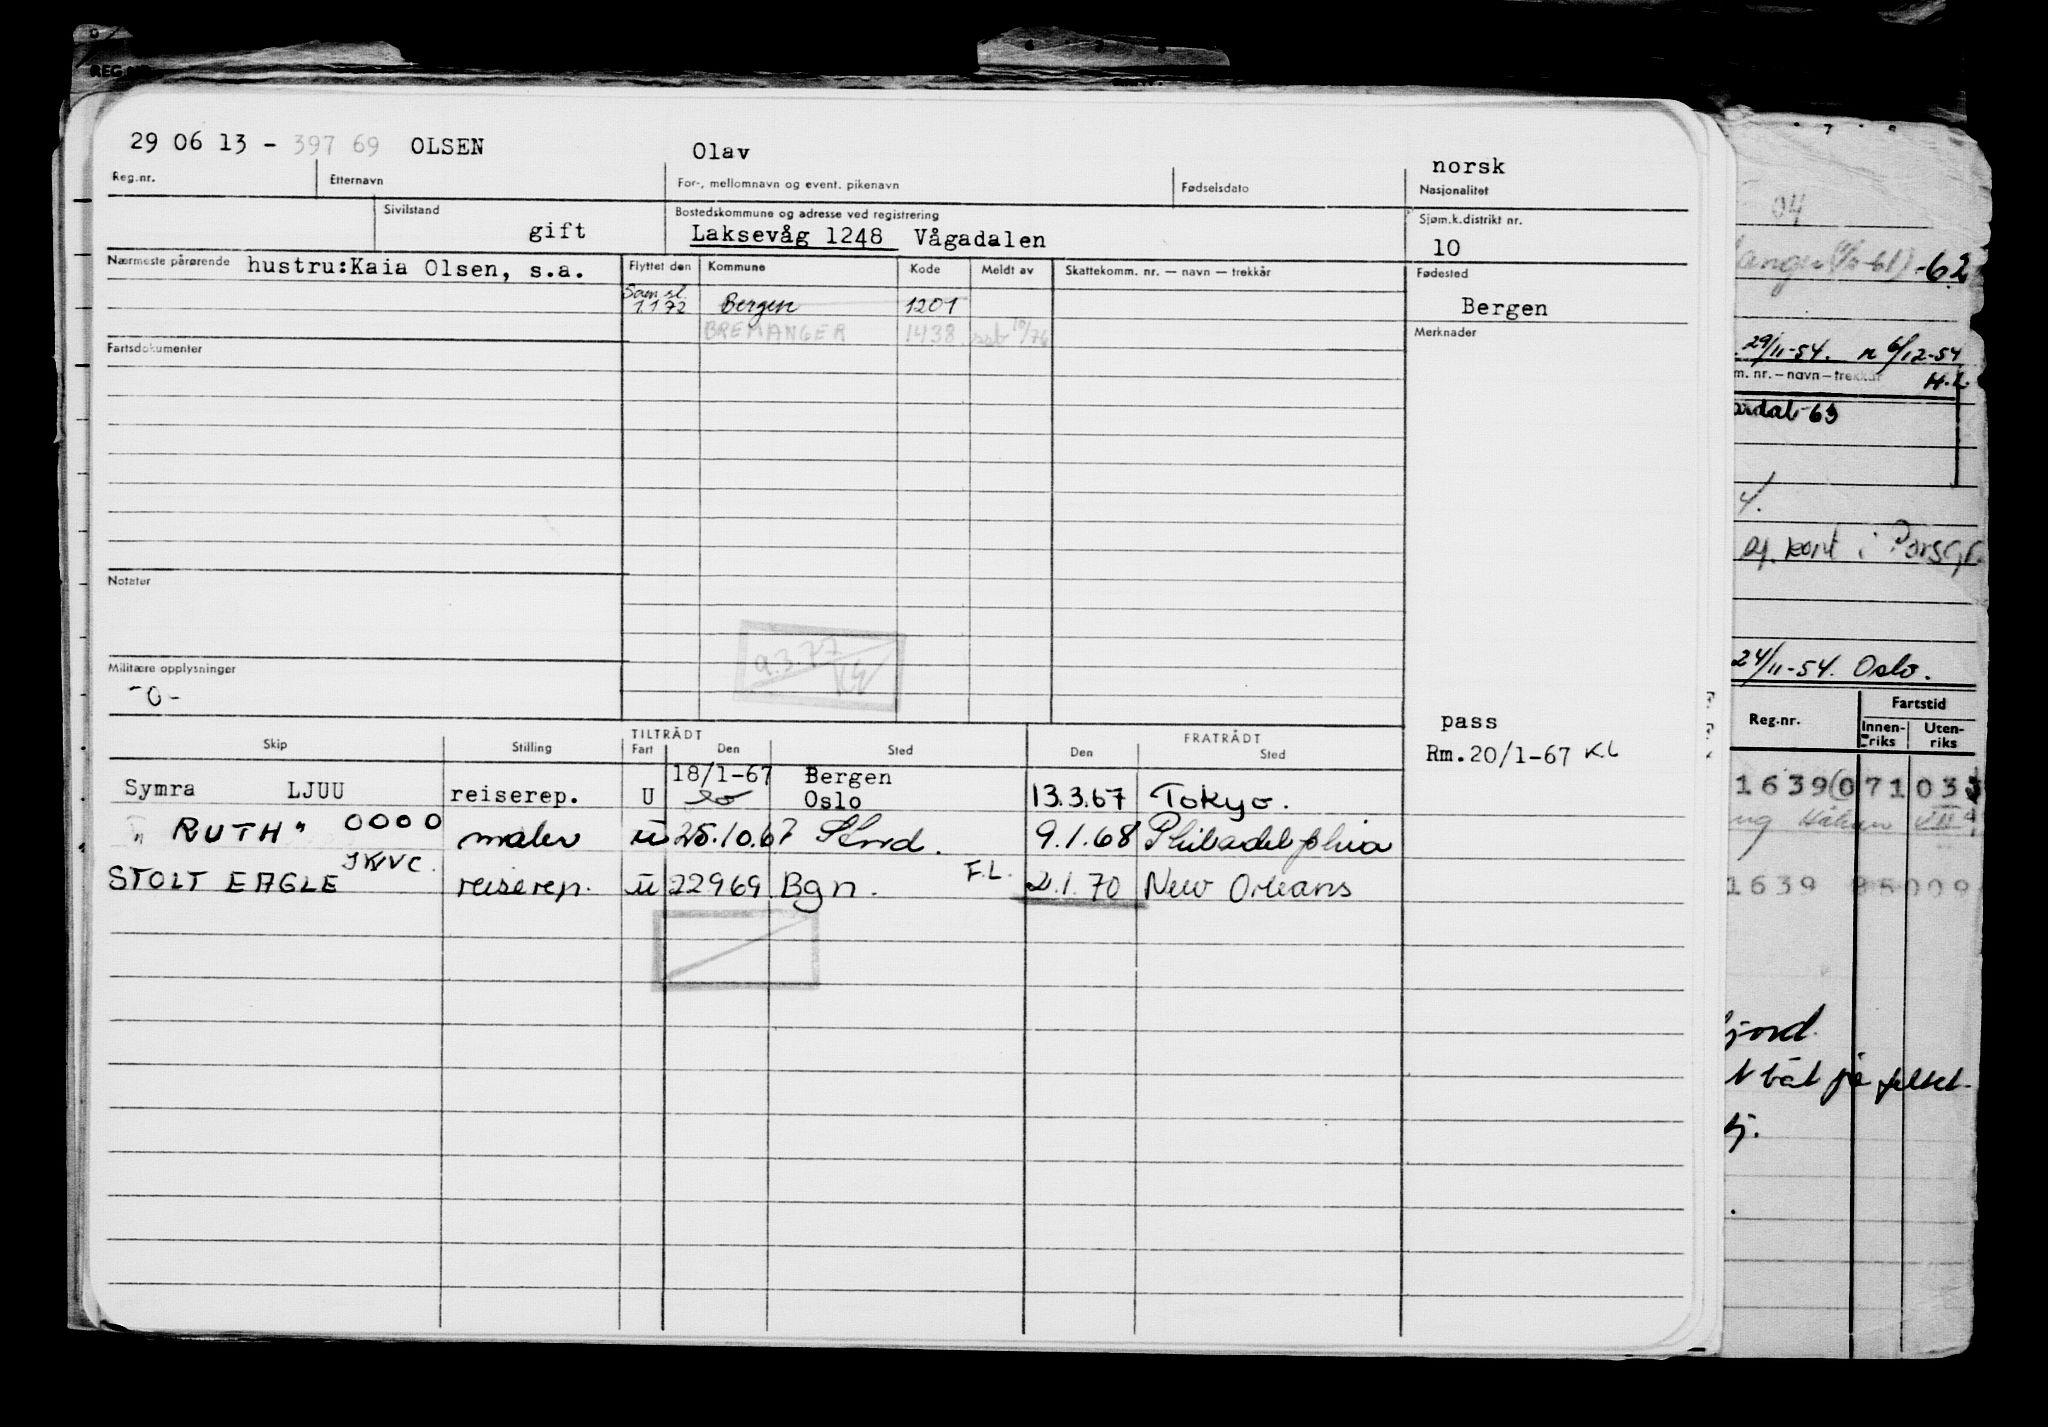 REG.NR.
29 06 13 - 397 69 OLSEN Olav norsk
Reg.nr. Etternavn For-, mellomnavn og event. pikenavn Fødselsdato Nasjonalitet
Sivilstand Bostedskommune og adresse ved registrering Sjøm.k.distrikt nr.
gift Laksevåg 1248 Vågadalen 10
Nærmeste pårørende hustru:Kaia Olsen, s.a. Flyttet den Kommune Kode Meldt av Skattekomm. nr. — navn — trekkår Fødested
Sam.sl.
1172 Bergen 1201 Bergen
BREMANGER 1438 10/76
Fartsdokumenter Merknader
Notater
Militære opplysninger
-0-
9.3.77
pass
Rm.20/1-67 KL
TILTRÅDT FRATRÅDT
Skip Stilling Fart Den Sted Den Sted
18/1-67 Bergen
Symra LJUU reiserep. U Oslo 13.3.67 Tokyo.
"RUTH" OOOO maler U 25.10.67 Stord. 9.1.68 Philadelphia
JKVC.
STOLT EAGLE reiserep. U 22969 Bgn. F.L. 2.1.70 New Orleans
04
-62
29/11-54. n 6/12-54
m. nr. — navn — trekkår H.L.
ardal-63
4.
kont i Porsgr
24/11-54. Oslo.
Fartstid
Reg.nr. Innen-riks Uten-riks
1639 071 03
1639
fjord.
t båt på feltet.